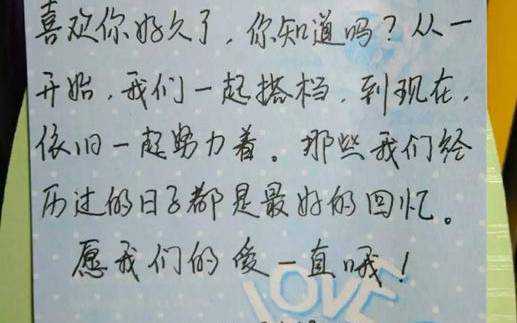 喜欢你好久了，你知道吗？从一
开始，我们一起搭档，到现在，
依旧一起努力着。那些我们经
历过的日子都是最好的回忆。
愿我们的爱一直哦！
LOVE